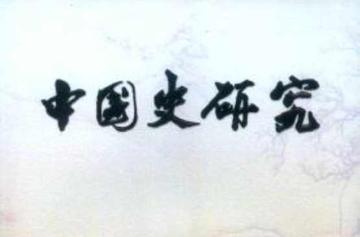 中国史研究